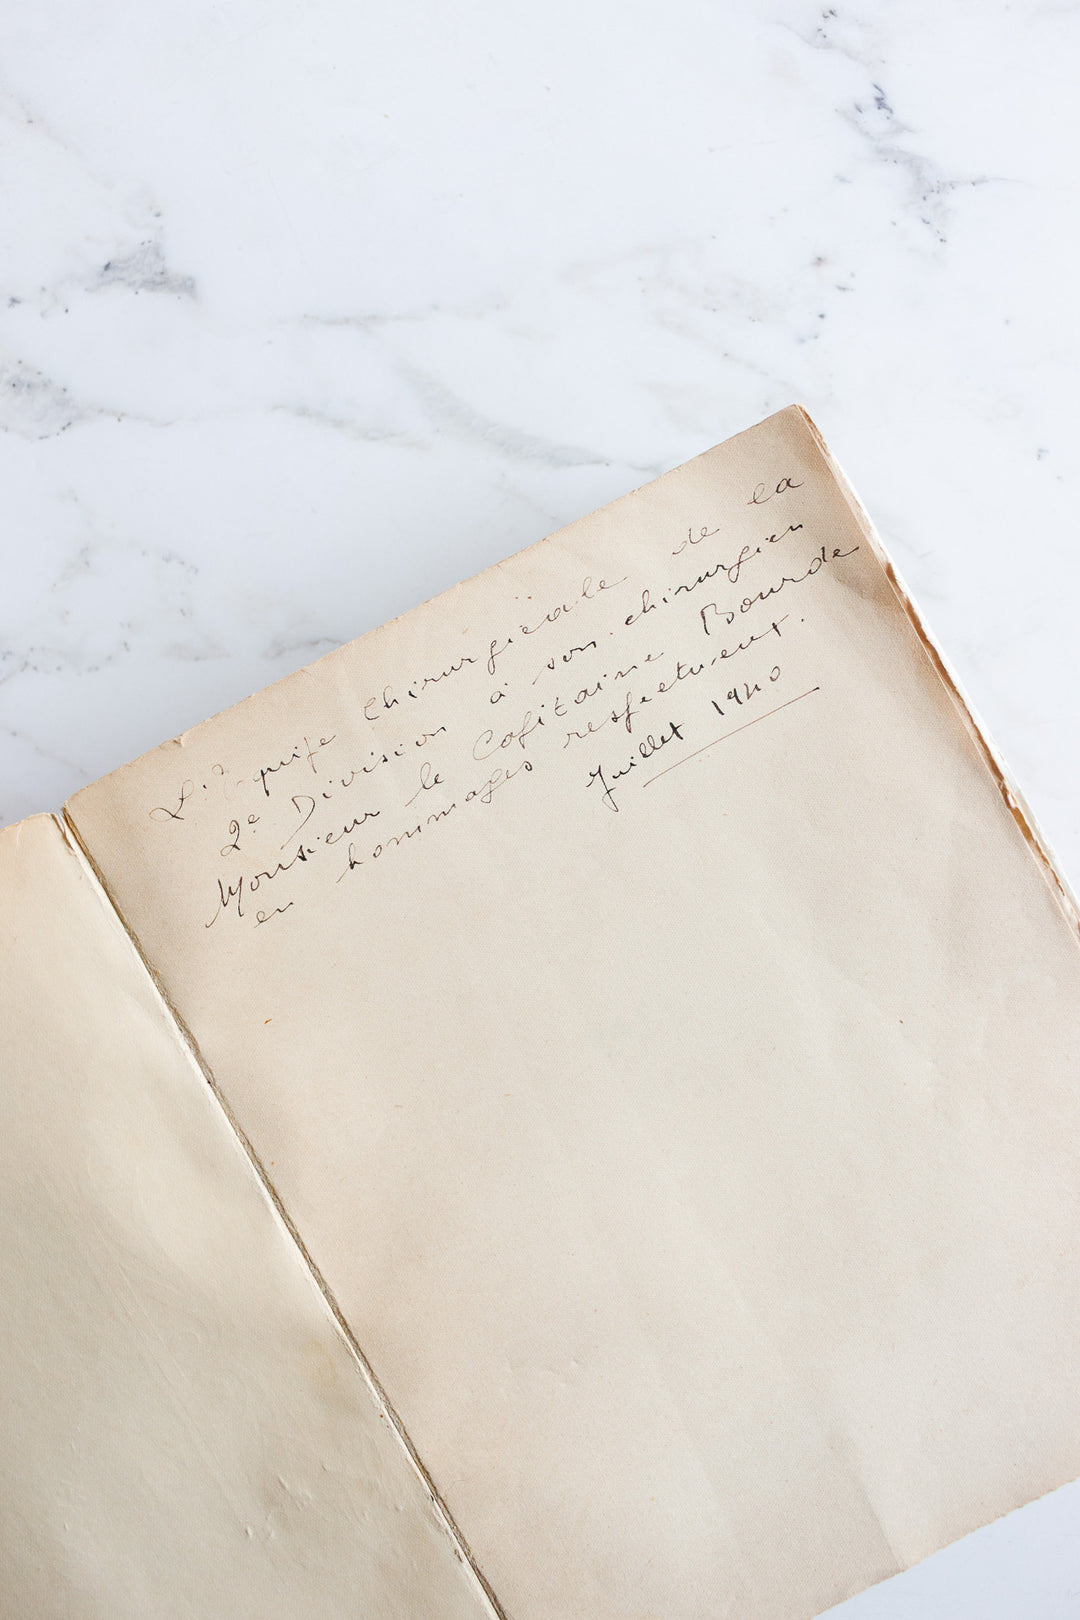 L'équipe Chirurgicale de la
2e Division à son chirurgien
Monsieur le Capitaine Bourde
en hommages respectueux.
Juillet 1940